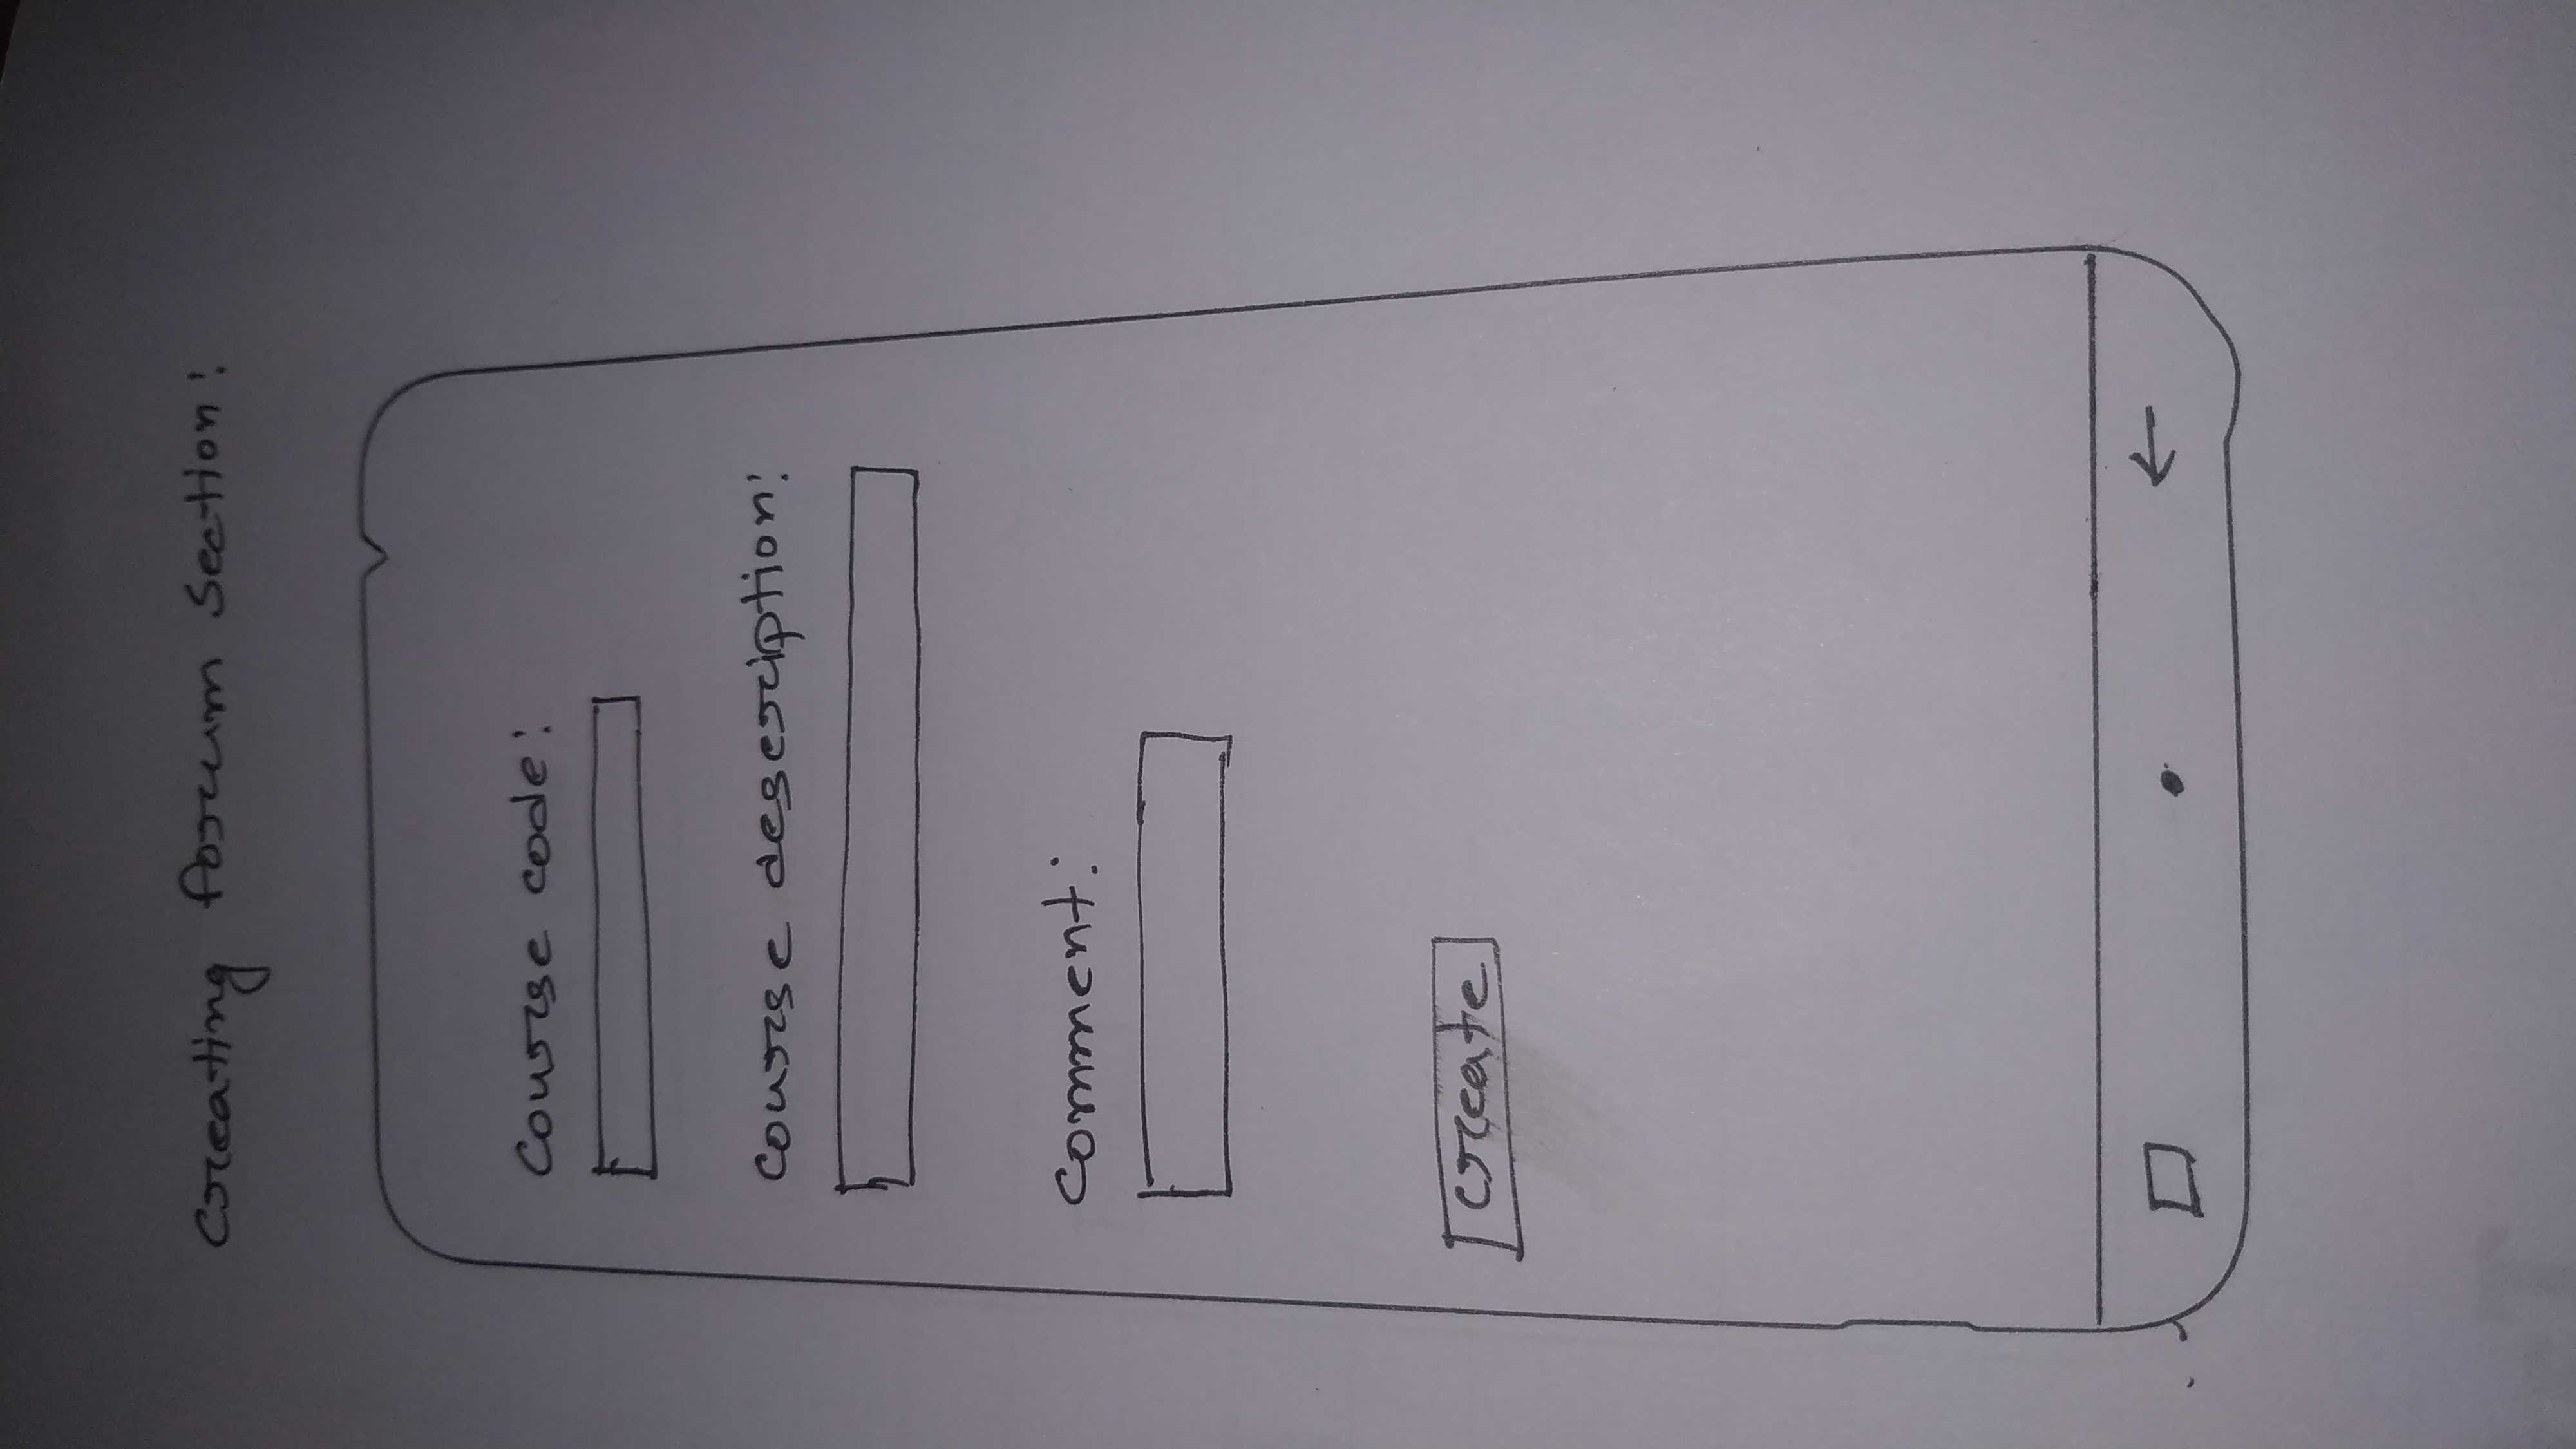 Creating forum section:
Course code:
Course description:
Comment:
Create